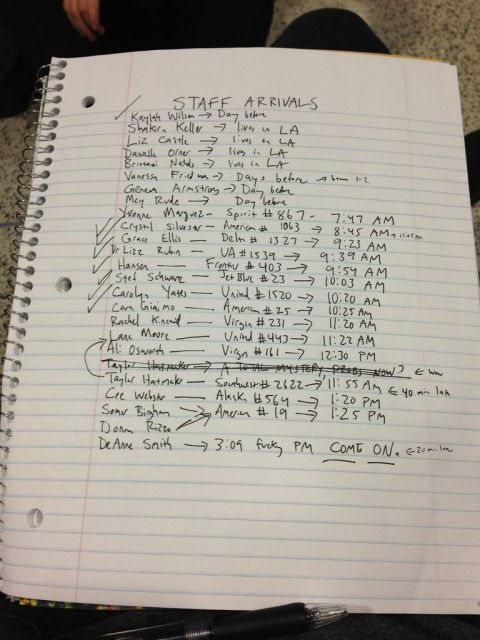 STAFF ARRIVALS
✓ Kaylah Wilson → Day before
Shakira Keller → lives in LA
Liz Castle → lives in LA
Danielle Orner → lives in LA
Brittani → lives in LA
Vanessa Friedman → Days before →
Armstrong → Day before
Mey Rude → Day before
Yvonne Marquez - Spirit #867 - 7:47 AM
✓ Crystal Silvester → American # 1063 → 8:45 AM →
✓ Grace Ellis - Delta # 1327 → 9:23 AM
✓ Dr Lizz Rubin - UA #1539 → 9:39 AM
✓ Hansen - Frontier # 403 → 9:54 AM
✓ Stef Schwartz - Jet Blue # 23 → 10:03 AM
✓ Carolyn Yates - United # 1520 → 10:20 AM
✓ Cara Giaimo - American # 25 → 10:25 AM
Rachel Kincaid - Virgin # 231 → 11:20 AM
Lane Moore - United #443 → 11:22 AM
Ali Osworth - Virgin #161 → 12:30 PM
Taylor Hatmaker → A TOTAL MYSTERY PROBS NOW? ← wow
Taylor Hatmaker - Southwest # 2622 → 11:55 AM ← 40 min late
Cee Webster - Alaska #564 → 1:20 PM
Somer Bingham → American # 19 → 1:25 PM
Donna Rizzo
DeAnne Smith → 3:09 fucky PM COME ON. ← 20 min late